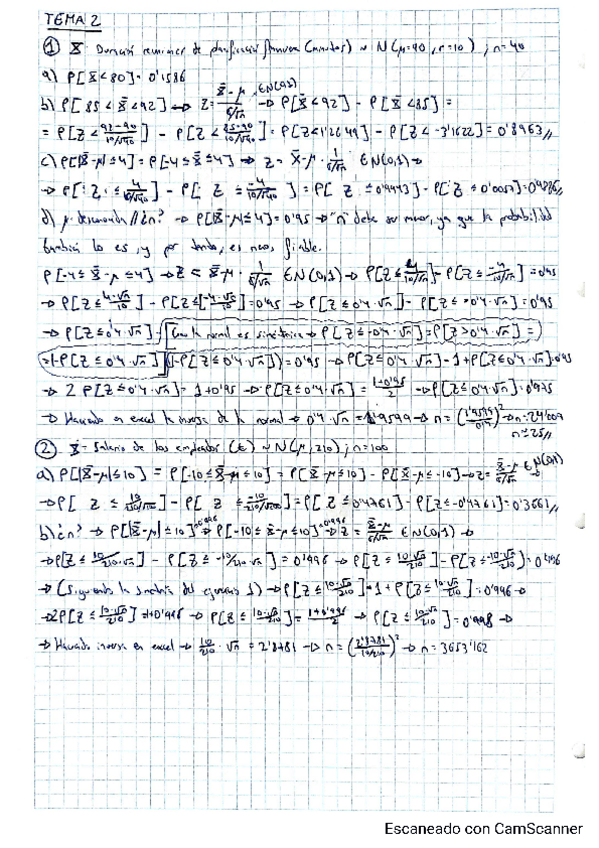 TEMA 2
① X̄ Duración reuniones de planificación (minutos) ~ N(μ=90, σ=10) ; n=40
a) P[X̄<80]=0'1586
b) P[85<X̄<92] → Z = (X̄-μ)/(σ/√n) ∈N(0,1) → P[X̄<92] - P[X̄<85] =
= P[Z < (92-90)/(10/√40)] - P[Z < (85-90)/(10/√40)] = P[Z<1'2649] - P[Z<-3'1622] = 0'8963//
c) P[|X̄-μ|≤4] = P[-4≤X̄≤4] → Z = X̄-μ · 1/(σ/√n) ∈N(0,1) →
→ P[Z ≤ 4/(10/√40)] - P[Z ≤ -4/(10/√40)] = P[Z ≤0'9943] - P[Z ≤0'0057] = 0'9886//
d) μ desconocida // ¿n? → P[|X̄-μ|≤4]=0'95 → "n" debe ser menor, ya que la probabilidad
también lo es, y por tanto, es menos fiable.
P[-4≤X̄-μ≤4] → Z = X̄-μ · 1/(σ/√n) ∈N(0,1) → P[Z≤ 4/(10/√n)] - P[Z≤ -4/(10/√n)] = 0'95
→ P[Z≤ 4·√n/10] - P[Z≤ -4·√n/10] = 0'95 → P[Z≤0'4·√n] - P[Z≤-0'4·√n] = 0'95
→ P[Z≤0'4·√n] - (Como la normal es simétrica → P[Z≤-0'4·√n] = P[Z>0'4·√n] =
= 1-P[Z≤0'4·√n]) (1-P[Z≤0'4·√n]) = 0'95 → P[Z≤0'4·√n] - 1 + P[Z≤0'4·√n] = 0'95
→ 2 P[Z≤0'4·√n] = 1+0'95 → P[Z≤0'4·√n] = (1+0'95)/2 → P[Z≤0'4·√n] = 0'975
→ Haciendo en excel la inversa de la normal → 0'4·√n = 1'9599 → n = (1'9599/0'4)² → n=24'009
n≈25//
② X̄ - Salario de los empleados (€) ~ N(μ, 210) ; n=100
a) P[|X̄-μ|≤10] = P[-10≤X̄-μ≤10] = P[X̄-μ≤10] - P[X̄-μ≤-10] → Z = (X̄-μ)/(σ/√n) ∈N(0,1)
→ P[Z ≤ 10/(210/√100)] - P[Z ≤ -10/(210/√100)] = P[Z≤0'4761] - P[Z≤-0'4761] = 0'3661//
b) ¿n? → P[|X̄-μ|≤10]=0'996 → P[-10≤X̄-μ≤10]=0'996 → Z = (X̄-μ)/(σ/√n) ∈N(0,1) →
→ P[Z≤ 10/210·√n] - P[Z≤ -10/210·√n] = 0'996 → P[Z≤ 10·√n/210] - P[Z≤ -10·√n/210] = 0'996
→ (Siguiendo la simetría del ejercicio 1) → P[Z≤ 10·√n/210] - 1 + P[Z≤ 10·√n/210] = 0'996 →
→ 2P[Z≤ 10·√n/210] = 1+0'996 → P[Z≤ 10·√n/210] = (1+0'996)/2 → P[Z≤ 10·√n/210] = 0'998 →
→ Haciendo inversa en excel → 10/210·√n = 2'8781 → n = (2'8781/(10/210))² → n = 3653'162
Escaneado con CamScanner